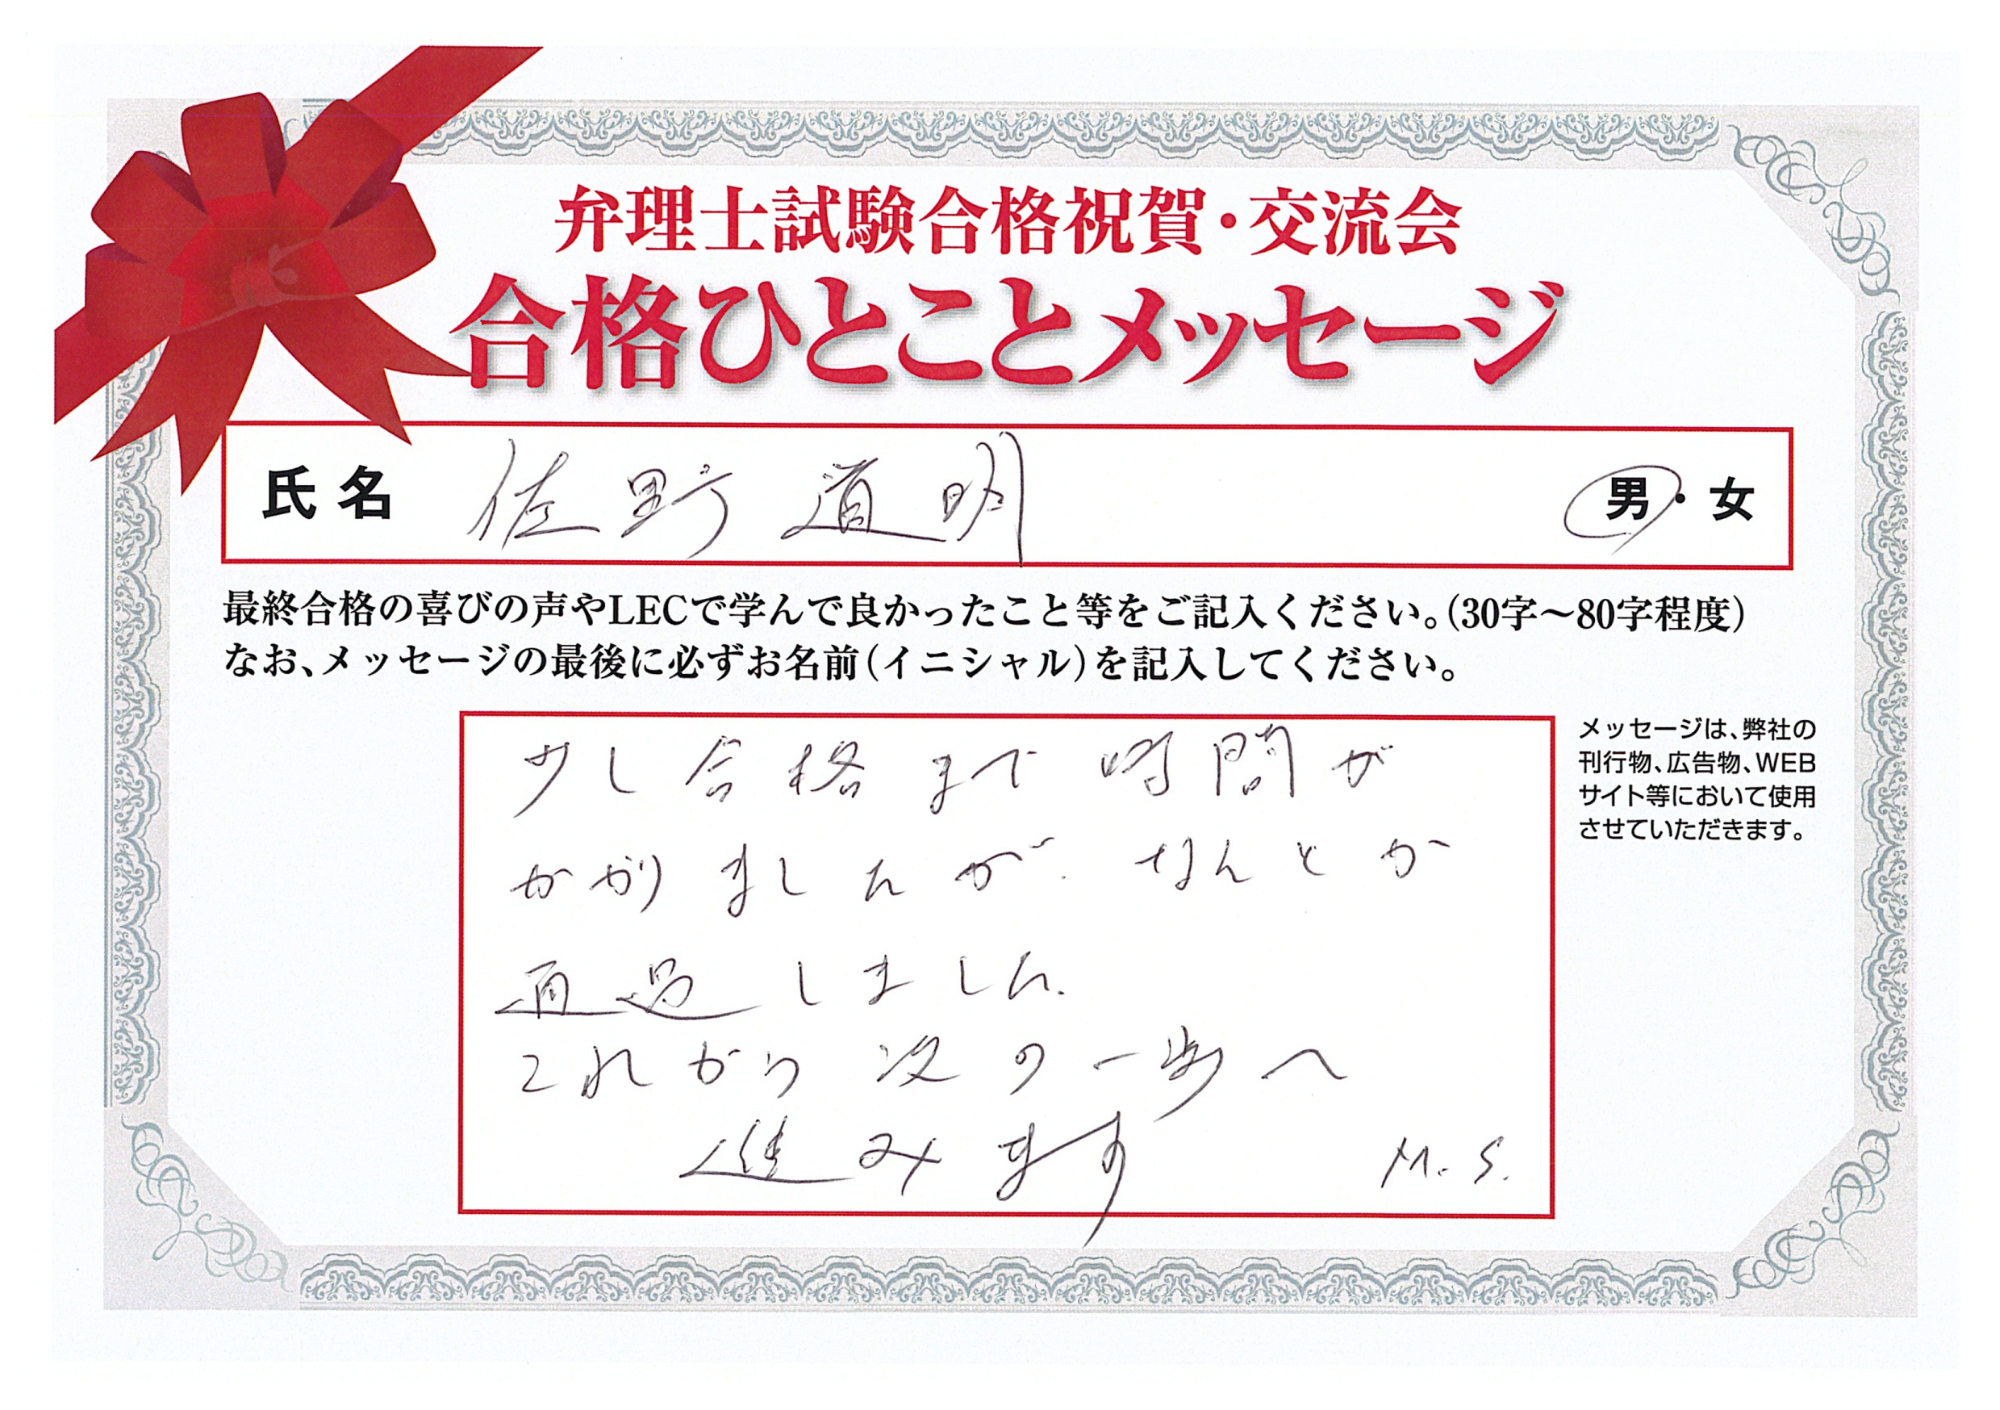 弁理士試験合格祝賀・交流会
合格ひとことメッセージ
氏名 佐野 道明 男・女
最終合格の喜びの声やLECで学んで良かったこと等をご記入ください。(30字〜80字程度)
なお、メッセージの最後に必ずお名前(イニシャル)を記入してください。
少し合格まで時間が
かかりましたが、なんとか
通過しました。
これから次の一歩へ
進みます M.S.
メッセージは、弊社の
刊行物、広告物、WEB
サイト等において使用
させていただきます。